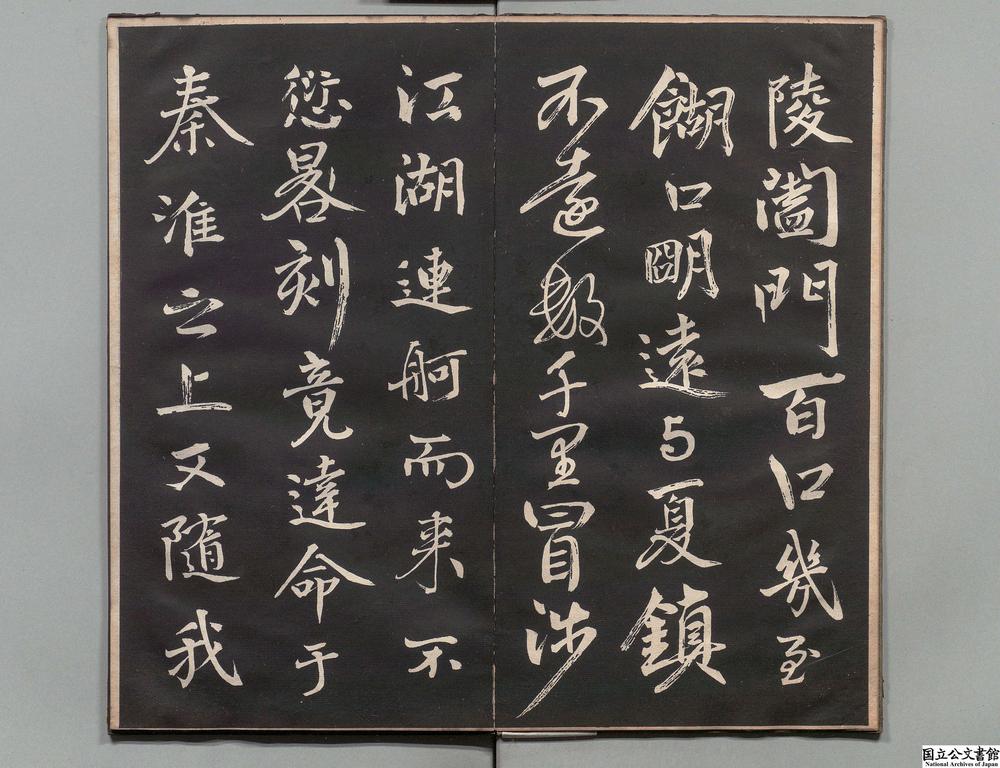 陵闔門百口幾至
餬口明遠与夏鎮
不遠數千里冒涉
江湖連舸而来不
愆晷刻竟達命于
秦淮之上又随我
国立公文書館
National Archives of Japan